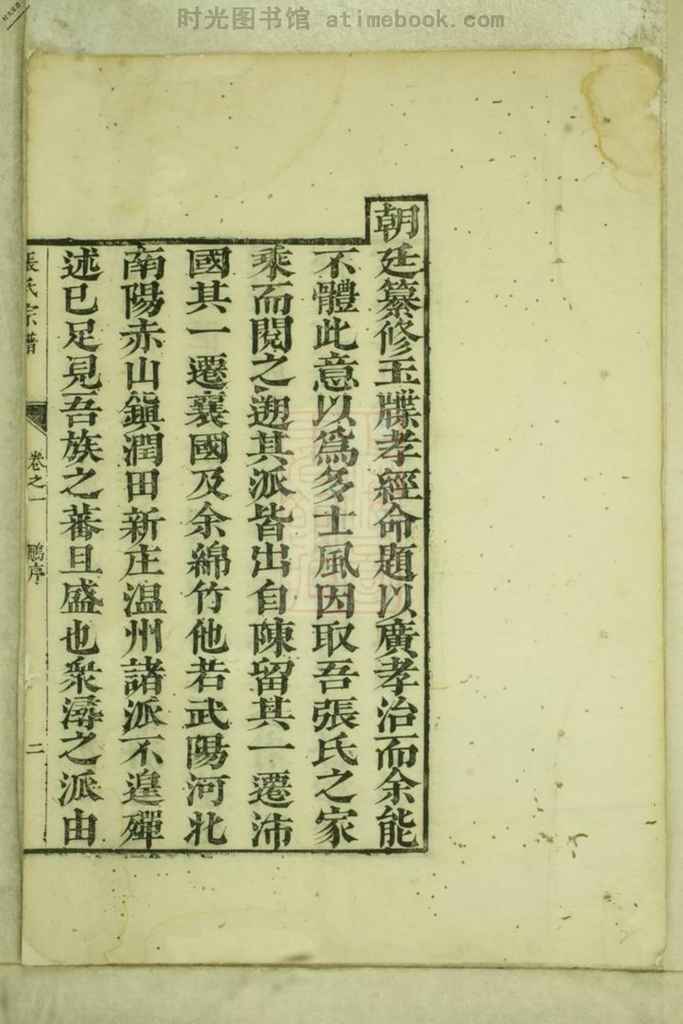 时光图书馆 atimebook.com
朝廷纂修玉牒孝經命題以廣孝治而余能
不體此意以為多士風因取吾張氏之家
乘而閱之遡其派皆出自陳留其一遷沛
國其一遷襄國及余綿竹他若武陽河北
南陽赤山鎮潤田新庄温州諸派不遑殫
述已足見吾族之蕃且盛也衆潯之派由
張氏宗譜
卷之一
鵬序
二